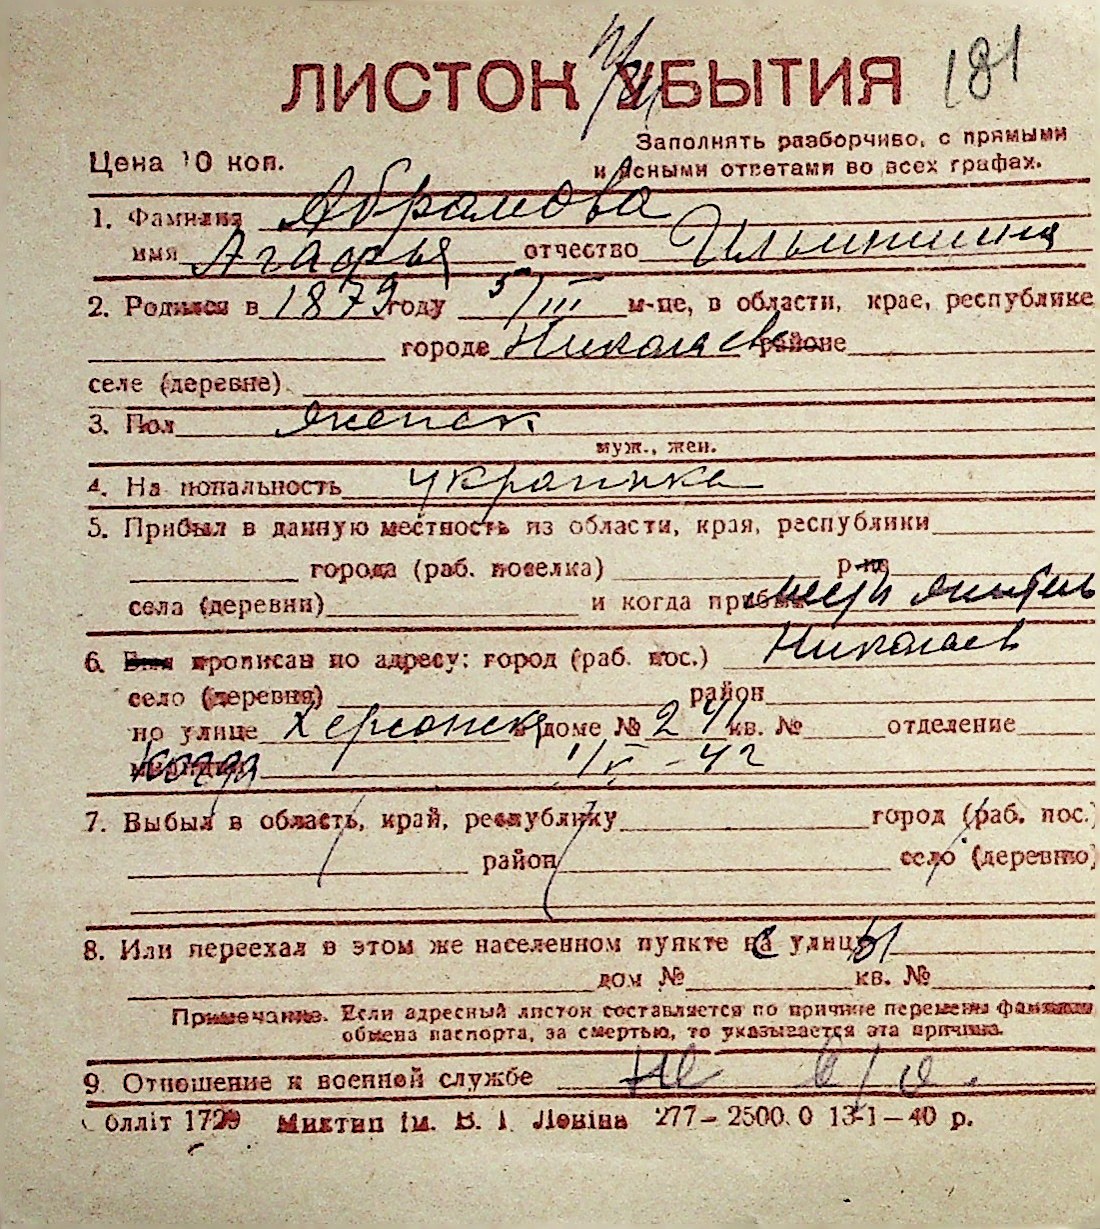 181
ЛИСТОК УБЫТИЯ
Заполнять разборчиво, с прямыми
Цена 10 коп.
и ясными ответами во всех графах.
1. Фамилия Абрамова
имя Агафья отчество Ильинишна
2. Родился в 1879 году 5/III м-це, в области, крае, республике
городе Николаеве районе
селе (деревне)
3. Пол женск
муж., жен.
4. На иональность украинка
5. Прибыл в данную местность из области, края, республики
города (раб. поселка) р-на
села (деревни) и когда прибыл житель
6. прописан по адресу: город (раб. пос.) Николаев
село (деревня) район
по улице Херсонск доме № 241 кв. № отделение
когда
7. Выбыл в область, край, республику город (раб. пос.)
район село (деревню)
8. Или переехал в этом же населенном пункте с улицы
дом № кв. №
Примечание. Если адресный листок составляется по причине перемены фамилии
обмена паспорта, за смертью, то указывается эта причина.
9. Отношение к военной службе не в/о.
Облліт 1729 Миктип ім. В. І. Леніна 277—2500.0 13-1—40 р.